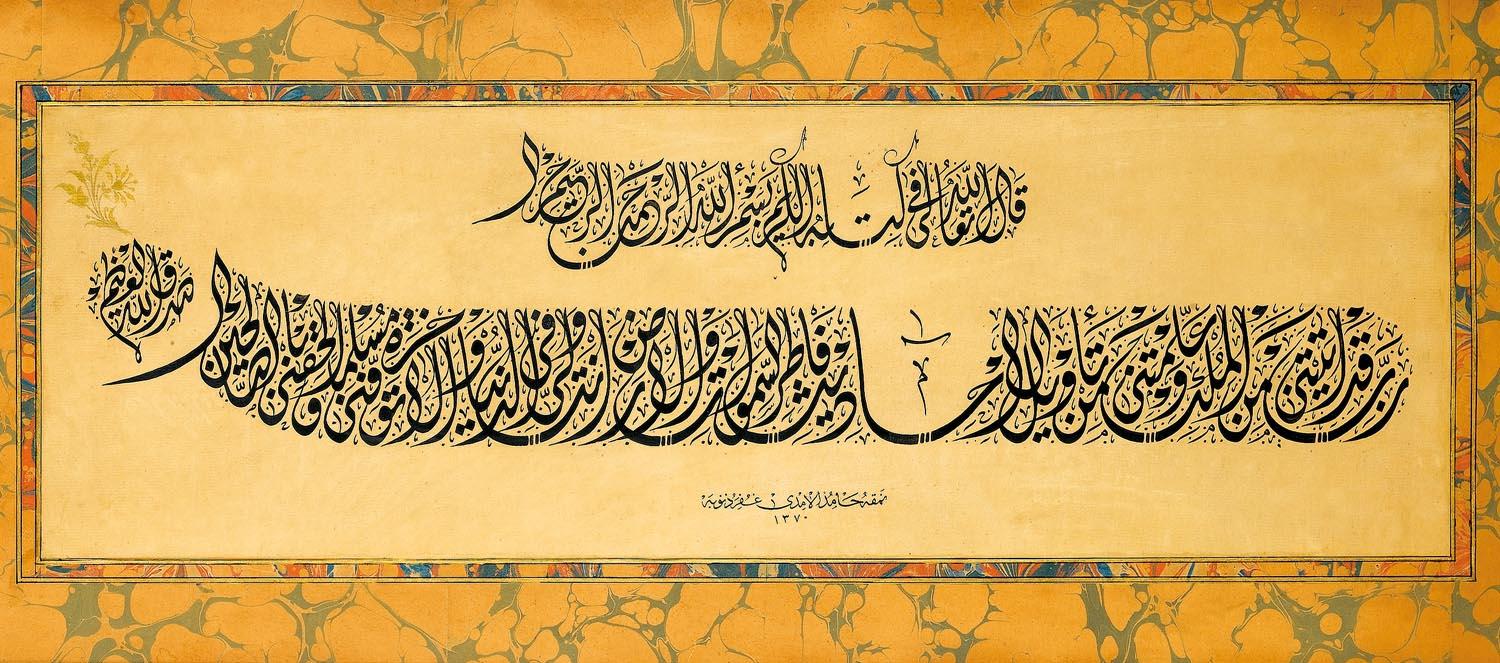 قال الله تعالى في كتابه الكريم بسم الله الرحمن الرحيم
رب قد اتيتني من الملك وعلمتني من تأويل الاحاديث فاطر السموات والارض انت وليي في الدنيا والاخرة توفني مسلما والحقني بالصالحين
صدق الله العظيم
نمقه حامد الامدي غفر ذنوبه
١٣٧٠